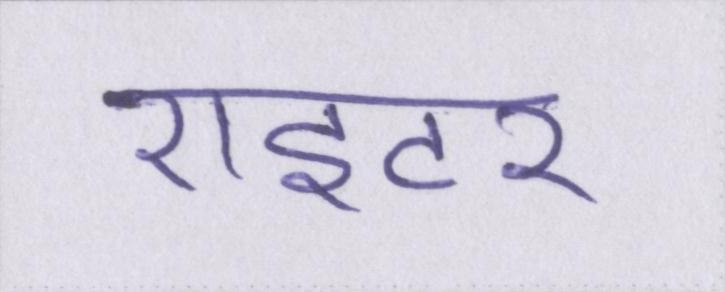 राइटर